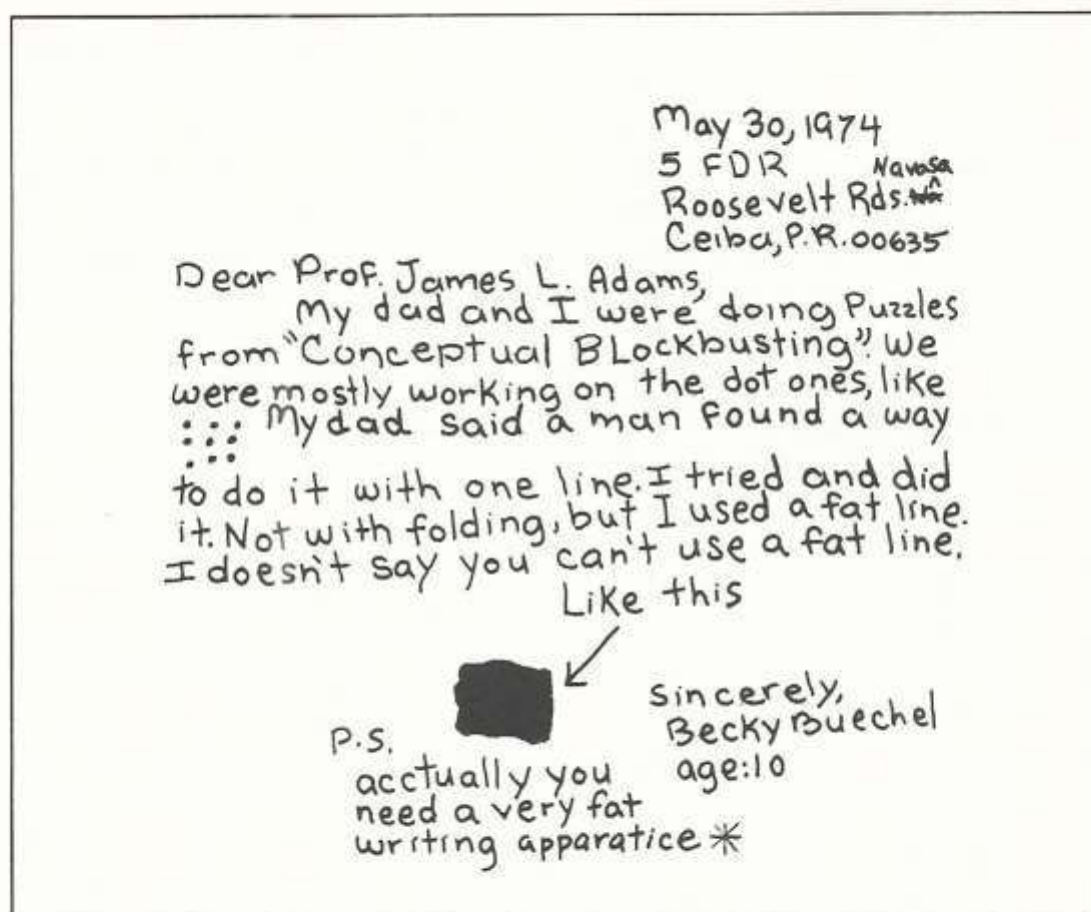 May 30, 1974
5 FDR Navasa
Roosevelt Rds.
Ceiba, P.R. 00635
Dear Prof. James L. Adams,
My dad and I were doing Puzzles
from "Conceptual BLockbusting". We
were mostly working on the dot ones, like
My dad said a man found a way
to do it with one line. I tried and did
it. Not with folding, but I used a fat line.
I doesn't say you can't use a fat line.
Like this
sincerely,
Becky Buechel
age:10
P.S.
acctually you
need a very fat
writing apparatice *